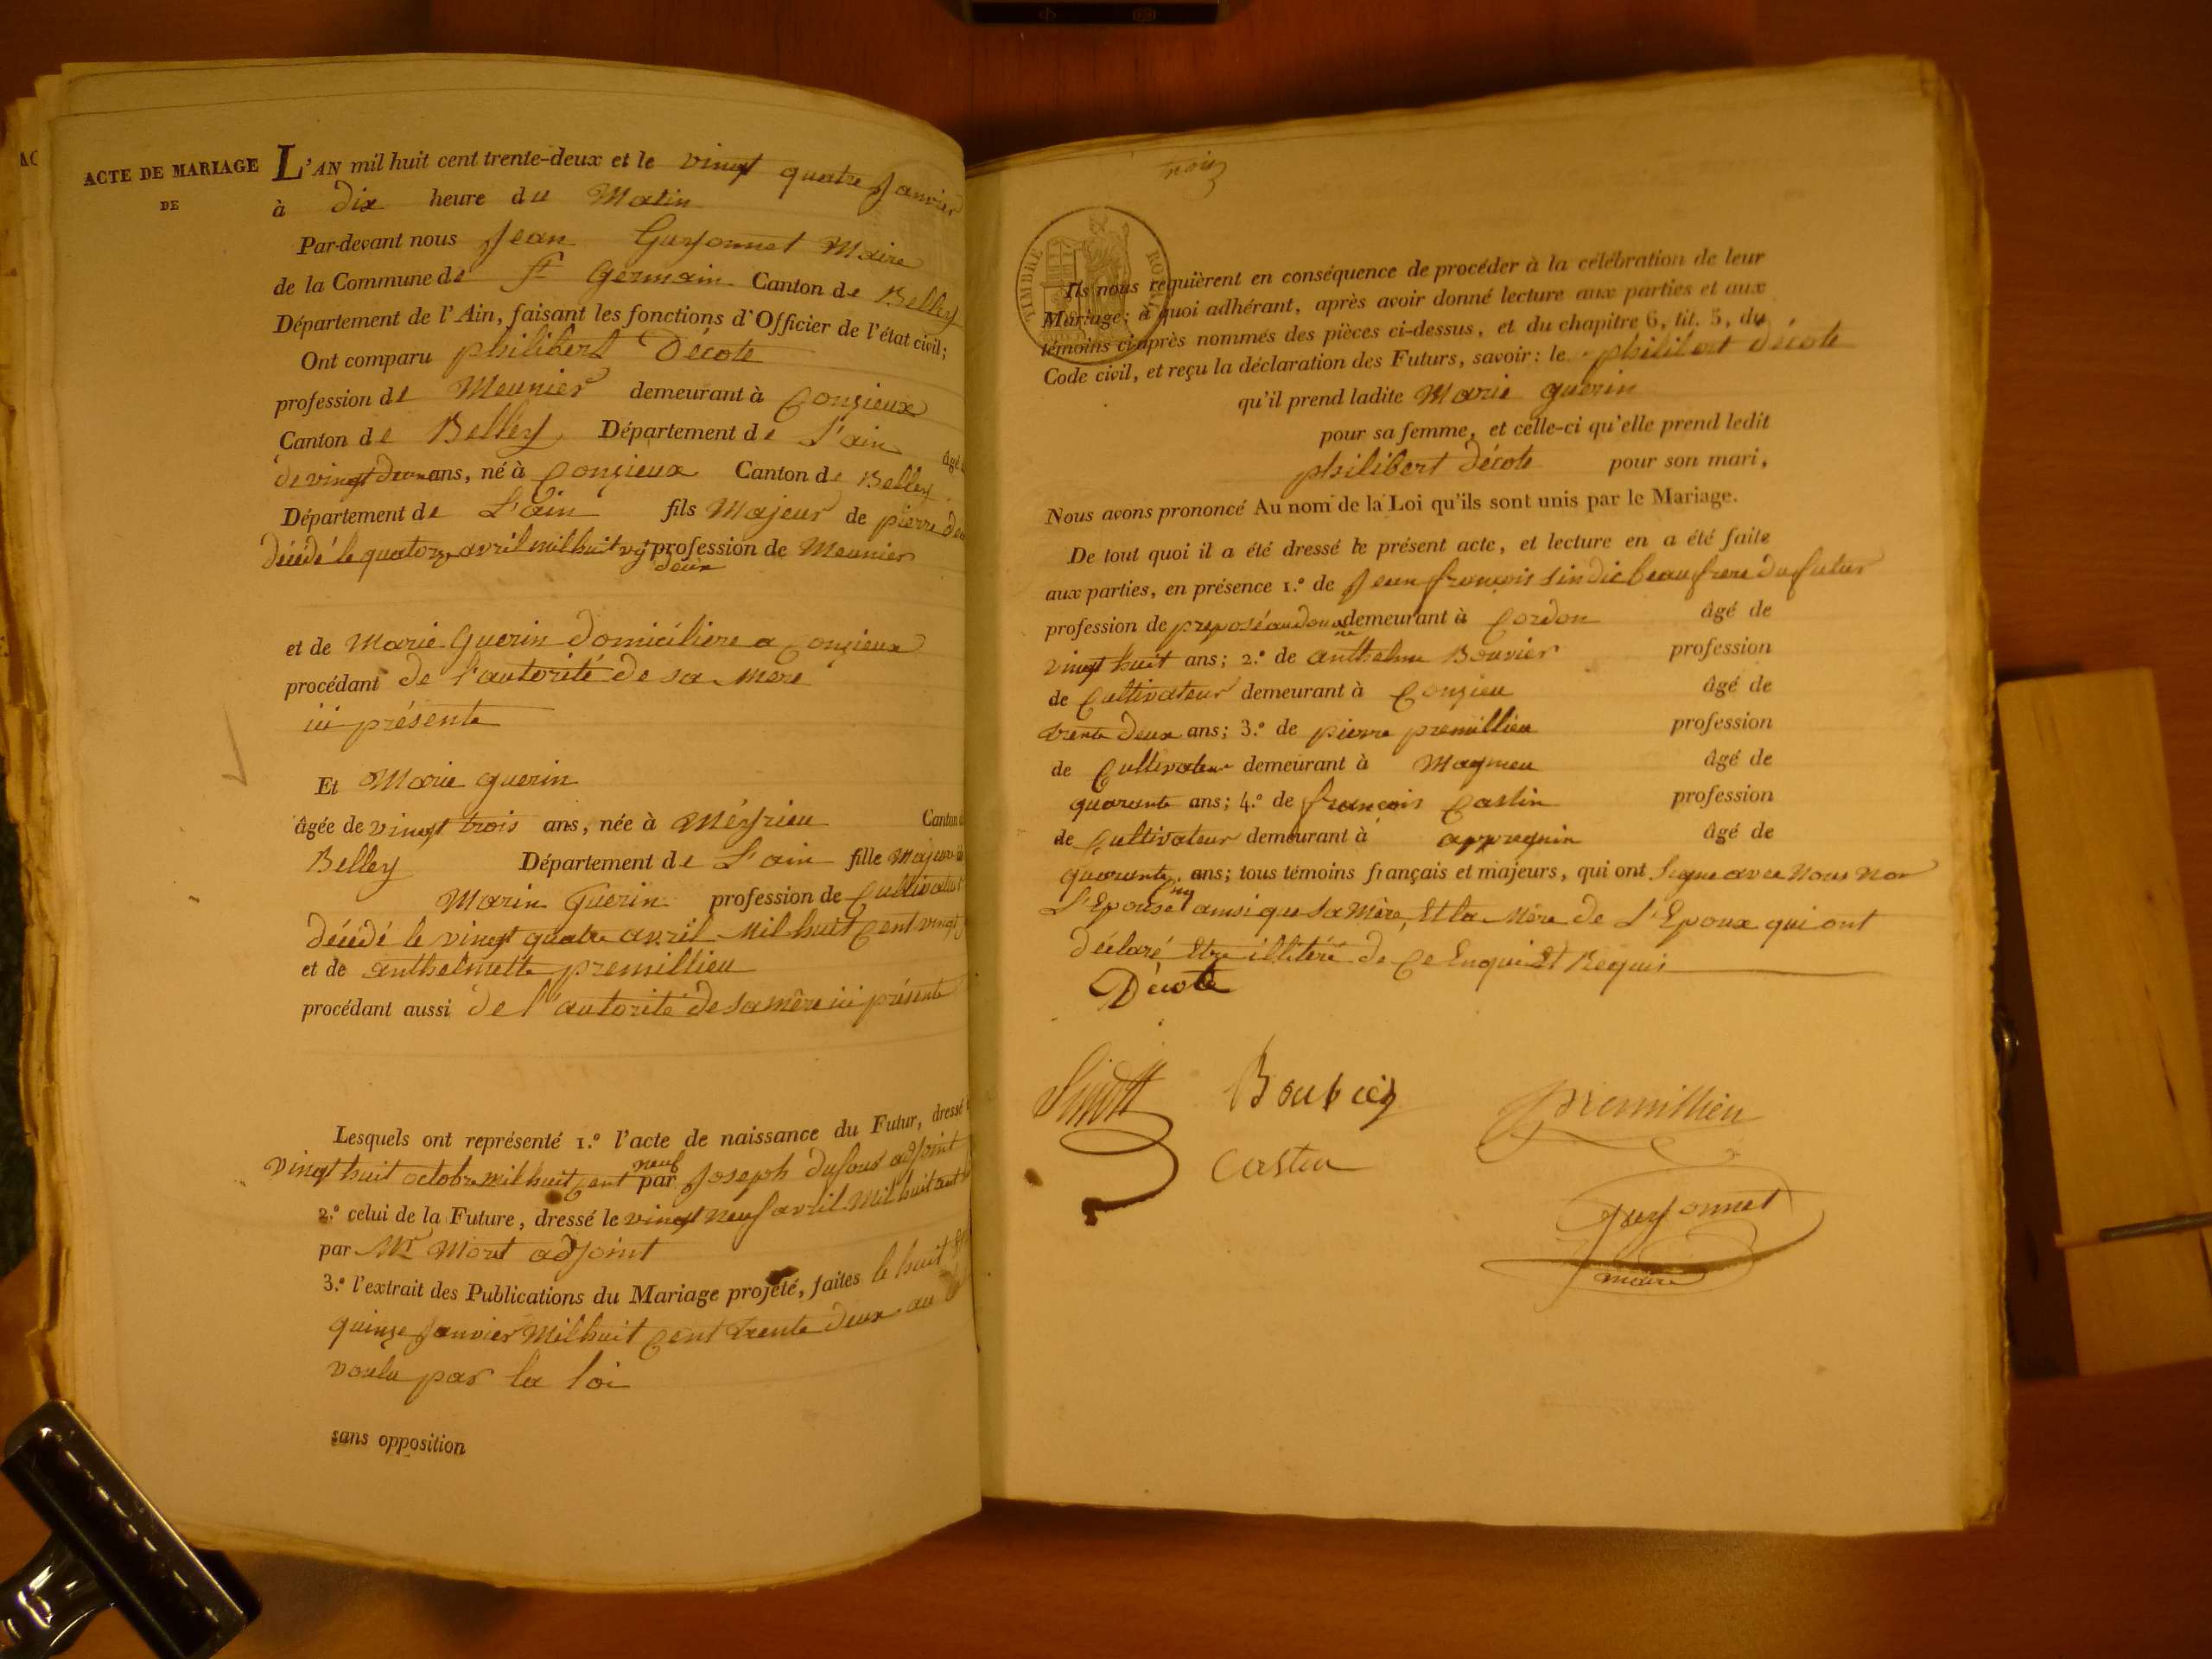 ACTE DE MARIAGE
DE
L'AN mil huit cent trente-deux et le vingt quatre Janvier
à dix heure du Matin
Par-devant nous Jean Guyonnet Maire
de la Commune de St Germain Canton de Belley
Département de l'Ain, faisant les fonctions d'Officier de l'état civil;
Ont comparu philibert Décote
profession de Meunier demeurant à Conzieux
Canton de Belley Département de L'ain âgé
de vingt deux ans, né à Conzieux Canton de Belley
Département de L'ain fils Majeur de pierre
décédé le quatorze avril mil huit vgt profession de Meunier
deux
et de Marie Guerin domiciliere a Conzieux
procédant de l'autorité de sa mere
ici présente
Et Marie guerin
âgée de vingt trois ans, née à Méyrieu Canton
Belley Département de L'ain fille Majeure
Marin Guerin profession de Cultivateur
décédé le vingt quatre avril Mil huit Cent vingt
et de anthelmette premillieu
procédant aussi de l'autorité de sa mère ici présente
Lesquels ont représenté 1.º l'acte de naissance du Futur, dressé
vingt huit octobre mil huit Cent neuf par Joseph dufour adjoint
2.º celui de la Future, dressé le vingt neuf avril Mil huit cent
par Mr Moret adjoint
3.º l'extrait des Publications du Mariage projeté, faites le huit
quinze Janvier Mil huit Cent trente deux au
voulu par la loi
sans opposition
TIMBRE ROYAL
Ils nous requièrent en conséquence de procéder à la célébration de leur
Mariage; à quoi adhérant, après avoir donné lecture aux parties et aux
témoins ci-après nommés des pièces ci-dessus, et du chapitre 6, tit. 5, du
Code civil, et reçu la déclaration des Futurs, savoir: le philibert décote
qu'il prend ladite Marie guerin
pour sa femme, et celle-ci qu'elle prend ledit
philibert décote pour son mari,
Nous avons prononcé Au nom de la Loi qu'ils sont unis par le Mariage.
De tout quoi il a été dressé le présent acte, et lecture en a été faite
aux parties, en présence 1.º de Jean françois sindic beau frere du futur
profession de preposé au douane demeurant à Cordon âgé de
vingt huit ans; 2.º de anthelme Bouvier profession
de Cultivateur demeurant à Conzieu âgé de
trente deux ans; 3.º de pierre premillieu profession
de Cultivateur demeurant à Magnieu âgé de
quarante ans; 4.º de françois Castin profession
de Cultivateur demeurant à appregnin âgé de
quarante cinq ans; tous témoins français et majeurs, qui ont Signe avec Nous Non
L'Epouse ainsi que sa Mère, Et la Mère de L'Epoux qui ont
déclaré Etre illitéré de Ce Enquis Et Requis
Décote
Bouvier
premillieu
Castin
Guyonnet
maire